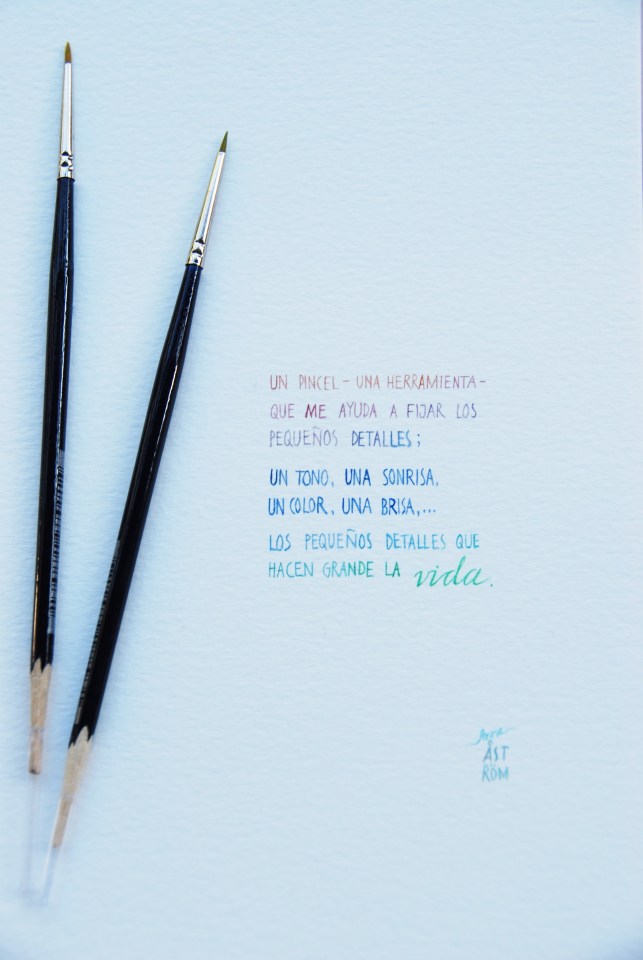 UN PINCEL - UNA HERRAMIENTA -
QUE ME AYUDA A FIJAR LOS
PEQUEÑOS DETALLES;
UN TONO, UNA SONRISA,
UN COLOR, UNA BRISA,...
LOS PEQUEÑOS DETALLES QUE
HACEN GRANDE LA vida.
ÅST
RÖM